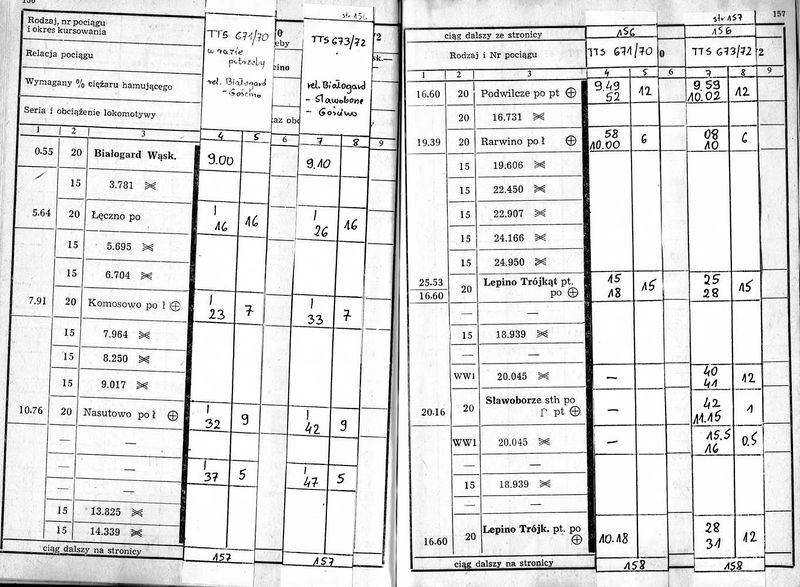 Rodzaj, nr pociągu
i okres kursowania
Relacja pociągu
Wymagany % ciężaru hamującego
Seria i obciążenie lokomotywy
TTS 671/70
w razie
potrzeby
rel. Białogard
- Gościno
str 156
TTS 673/72
rel. Białogard
- Sławobone
- Gościno
1 2 3 4 5 6 7 8 9
0.55 20 Białogard Wąsk. 9.00 9.10
15 3.781
5.64 20 Łęczno po | 16 16 | 26 16
15 5.695
15 6.704
7.91 20 Komosowo po ł | 23 7 | 33 7
15 7.964
15 8.250
15 9.017
10.76 20 Nasutowo po ł | 32 9 | 42 9
— —
— — | 37 5 | 47 5
— —
15 13.825
15 14.339
ciąg dalszy na stronicy 157 157
str 157
157
ciąg dalszy ze stronicy 156 156
Rodzaj i Nr pociągu TTS 671/70 TTS 673/72
1 2 3 4 5 6 7 8 9
16.60 20 Podwilcze po pt 9.49 52 12 9.59 10.02 12
20 16.731
19.39 20 Rarwino po ł 58 10.00 6 08 10 6
15 19.606
15 22.450
15 22.907
15 24.166
15 24.950
25.53 16.60 20 Lepino Trójkąt pt. po 15 18 15 25 28 15
— —
15 18.939
— —
WW1 20.045 — 40 41 12
20.16 20 Sławoborze sth po pt — 42 11.15 1
WW1 20.045 — 15.5 16 0.5
— —
15 18.939
16.60 20 Lepino Trójk. pt. po 10.18 28 31 12
ciąg dalszy na stronicy 158 158